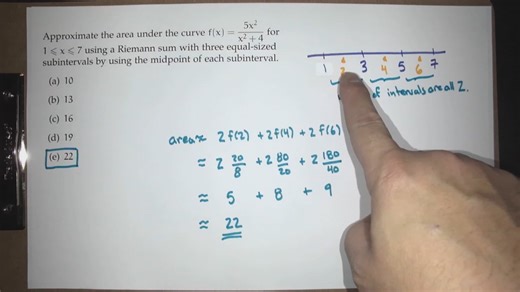 Approximate the area under the curve f(x) = 5x²/(x² + 4) for
1 ⩽ x ⩽ 7 using a Riemann sum with three equal-sized
subintervals by using the midpoint of each subinterval.
(a) 10
(b) 13
(c) 16
(d) 19
(e) 22
1 2 3 4 5 6 7
of intervals are all 2.
area ≈ 2f(2) + 2f(4) + 2f(6)
≈ 2 20/8 + 2 80/20 + 2 180/40
≈ 5 + 8 + 9
≈ 22